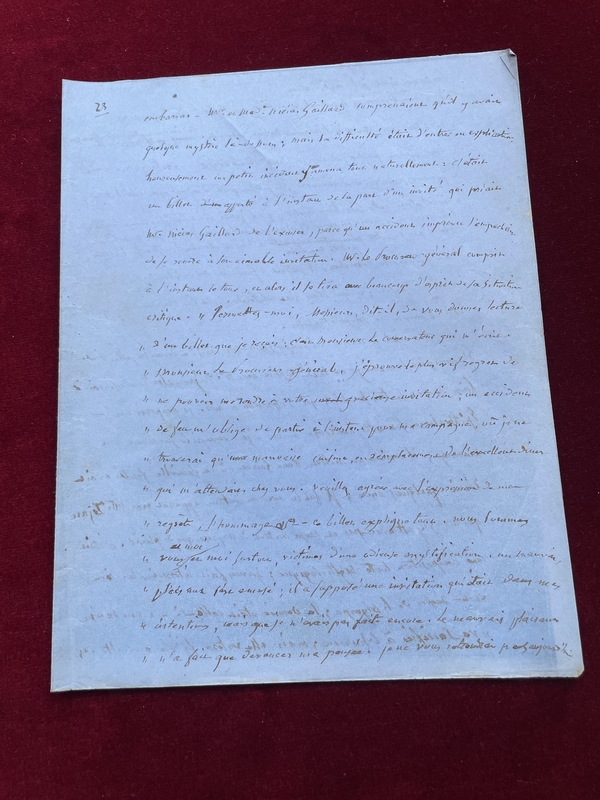 23
embarras. Mr. et Made. Nicias Gaillard comprenaient qu'il y avait
quelque mystère là-dessous; mais la difficulté était d'entrer en explication.
heureusement un petit incident l'amena tout naturellement: c'était
un billet apporté à l'instant de la part d'un invité qui priait
Mr. Nicias Gaillard de l'excuser, parce qu'un accident imprévu l'empêchait
de se rendre à son aimable invitation. Mr. Le Procureur général comprit
à l'instant le tour, et alors il se tira avec beaucoup d'esprit de sa situation
critique. " Permettez-moi, Messieurs, dit-il, de vous donner lecture
" d'un billet que je reçois: c'est Monsieur le conservateur qui m'écrit.
" Monsieur le Procureur général, j'éprouve le plus vif regret de
" ne pouvoir me rendre à votre gracieuse invitation; un accident
" de feu m'oblige de partir à l'instant pour ma campagne, où je ne
" trouverai qu'une mauvaise cuisine, en remplacement de l'excellent dîner
" qui m'attendait chez vous. veuillez agréer avec l'expression de mon
" regret, l'hommage &a - ce billet explique tout. nous sommes
et moi
" vous surtout, victimes d'une odieuse mystification. un mauvais
" plaisant fort avisé, il a supposé une invitation qui était dans mes
" intentions, mais que je n'avais pas faite encore. Le mauvais plaisant
" n'a fait que devancer ma pensée. je ne vous attendais pas aujourd'hui